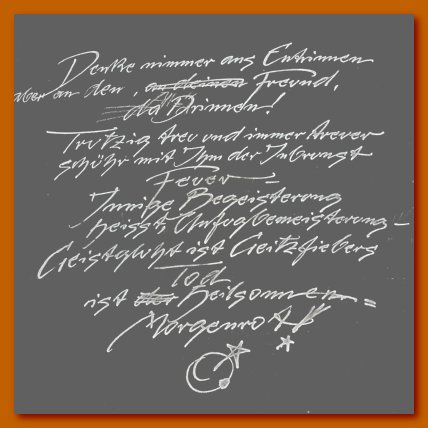 Denke nimmer ans Entrinnen
aber an den, an deinen Freund,
da Drinnen!
Trutzig treu und immer treuer
schühr mit Ihm der Inbrunst
Feuer –
Innige Begeisterung
heisst, Unfugbemeisterung –
Geistgluht ist Geitzfiebers
Tod
ist der Heilsonnen =
Morgenrot!